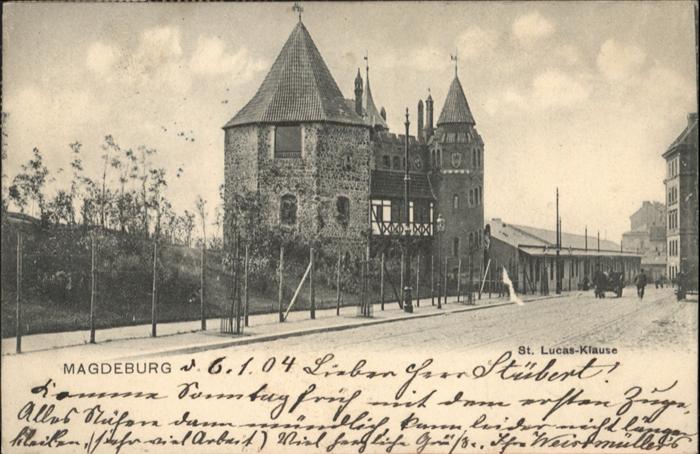 St. Lucas-Klause
MAGDEBURG d. 6.1.04 Lieber Herr Stübert!
Komme Sonntag früh mit dem ersten Zuge,
Alles Nähere dann mündlich, kann leider nicht länger
bleiben, (sehr viel Arbeit) Viel herzliche Grüße. Ihr